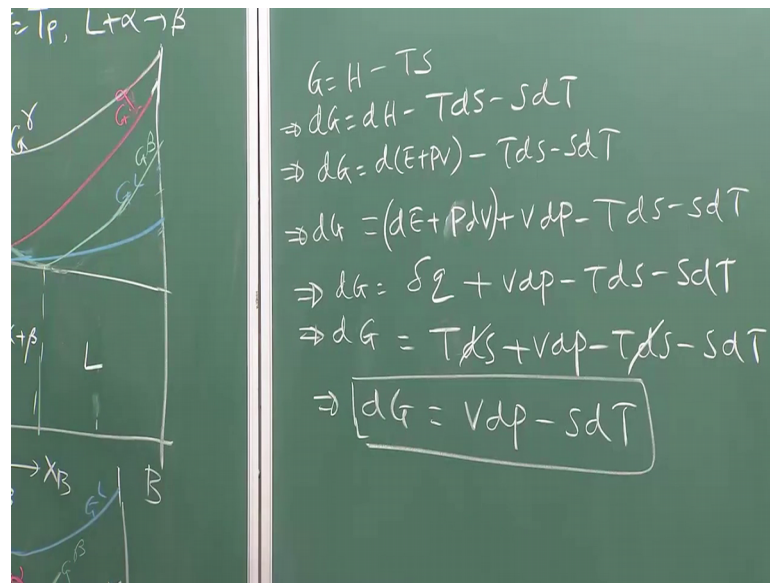 = Tp, L+α→β
G^γ
G^β
G^L
+β
L
→ X_B
B
G^L
G^β
G = H - TS
⇒ dG = dH - TdS - SdT
⇒ dG = d(E+PV) - TdS - SdT
⇒ dG = (dE + PdV) + VdP - TdS - SdT
⇒ dG = δq + VdP - TdS - SdT
⇒ dG = TdS + VdP - TdS - SdT
⇒ dG = VdP - SdT